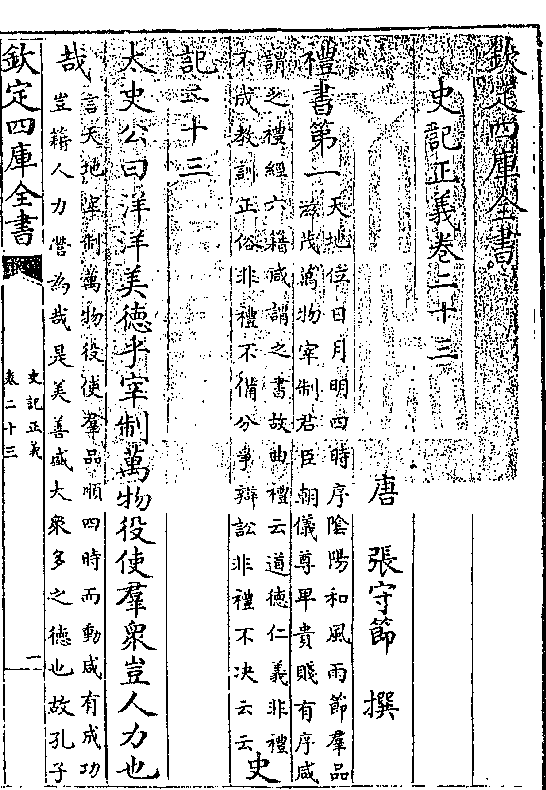 欽定四庫全書
史記正義卷二十三
唐 張守節 撰
禮書第一
天地位日月明四時序陰陽和風雨節羣品
滋茂萬物宰制君臣朝儀尊卑貴賤有序咸
謂之禮經六籍咸謂之書故曲禮云道德仁義非禮
不成教訓正俗非禮不備分爭辯訟非禮不决云云
史
記二十三
太史公曰洋洋美德乎宰制萬物役使羣衆豈人力也
哉
言天地宰制萬物役使羣品順四時而動咸有成功
豈藉人力營為哉是美善盛大衆多之德也故孔子
欽定四庫全書
史記正義
卷二十三
一